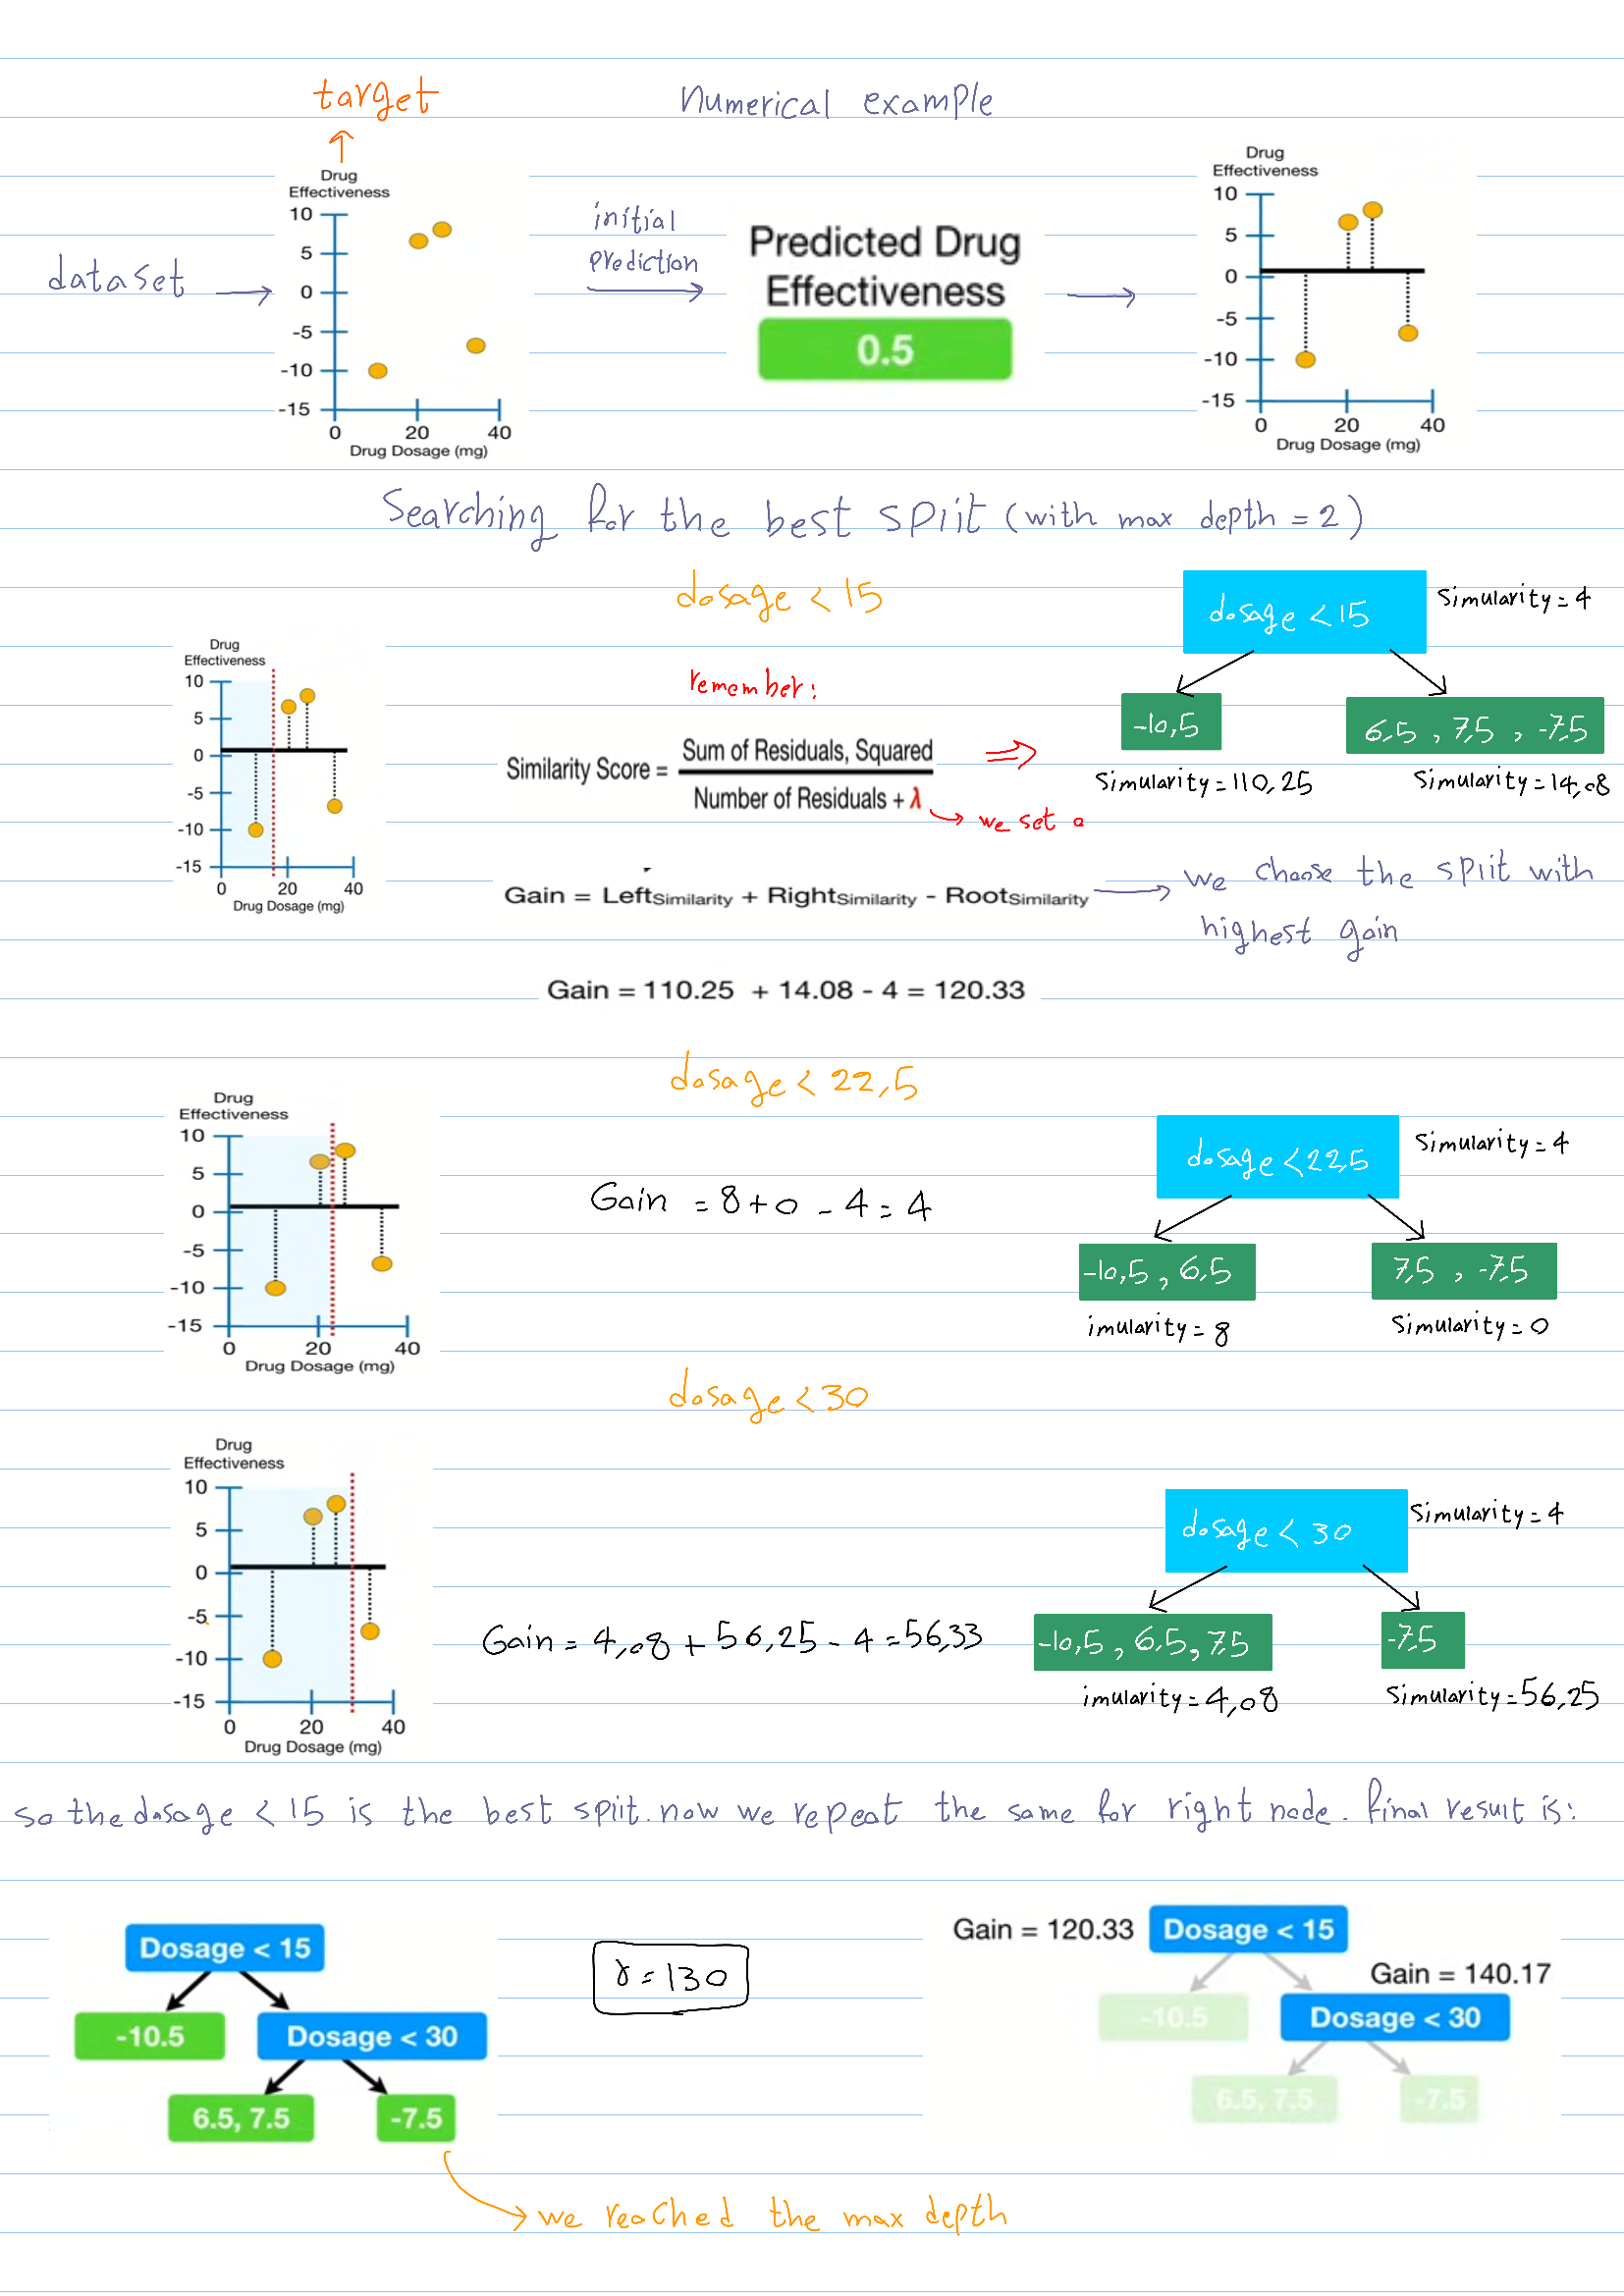 target
Numerical example
Drug
Effectiveness
10
5
0
-5
-10
-15
0 20 40
Drug Dosage (mg)
dataset
initial
prediction
Predicted Drug
Effectiveness
0.5
Drug
Effectiveness
10
5
0
-5
-10
-15
0 20 40
Drug Dosage (mg)
Searching for the best split (with max depth = 2)
dosage < 15
Drug
Effectiveness
10
5
0
-5
-10
-15
0 20 40
Drug Dosage (mg)
remember:
Similarity Score = Sum of Residuals, Squared
Number of Residuals + λ
we set 0
dosage < 15
Simularity = 4
-10,5
6,5 , 7,5 , -7,5
Simularity = 110,25
Simularity = 14,08
Gain = LeftSimilarity + RightSimilarity - RootSimilarity
we choose the split with
highest gain
Gain = 110.25 + 14.08 - 4 = 120.33
dosage < 22,5
Drug
Effectiveness
10
5
0
-5
-10
-15
0 20 40
Drug Dosage (mg)
Gain = 8 + 0 - 4 = 4
dosage < 22,5
Simularity = 4
-10,5 , 6,5
7,5 , -7,5
imularity = 8
Simularity = 0
dosage < 30
Drug
Effectiveness
10
5
0
-5
-10
-15
0 20 40
Drug Dosage (mg)
Gain = 4,08 + 56,25 - 4 = 56,33
dosage < 30
Simularity = 4
-10,5 , 6,5 , 7,5
-7,5
imularity = 4,08
Simularity = 56,25
so the dosage < 15 is the best split. now we repeat the same for right node. final result is:
Dosage < 15
-10.5
Dosage < 30
6.5, 7.5
-7.5
γ = 130
Gain = 120.33
Dosage < 15
Gain = 140.17
-10.5
Dosage < 30
6.5, 7.5
-7.5
we reached the max depth